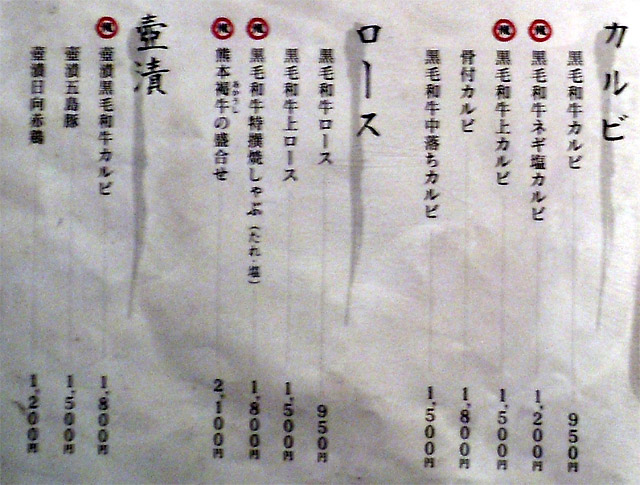 カルビ
黒毛和牛カルビ 950円
黒毛和牛ネギ塩カルビ 1,200円
黒毛和牛上カルビ 1,500円
骨付カルビ 1,800円
黒毛和牛中落ちカルビ 1,500円
ロース
黒毛和牛ロース 950円
黒毛和牛上ロース 1,500円
黒毛和牛特撰焼しゃぶ(たれ・塩) 1,800円
熊本褐牛の盛合せ 2,100円
あかうし
壺漬
壺漬黒毛和牛カルビ 1,800円
壺漬五島豚 1,500円
壺漬日向赤鶏 1,200円